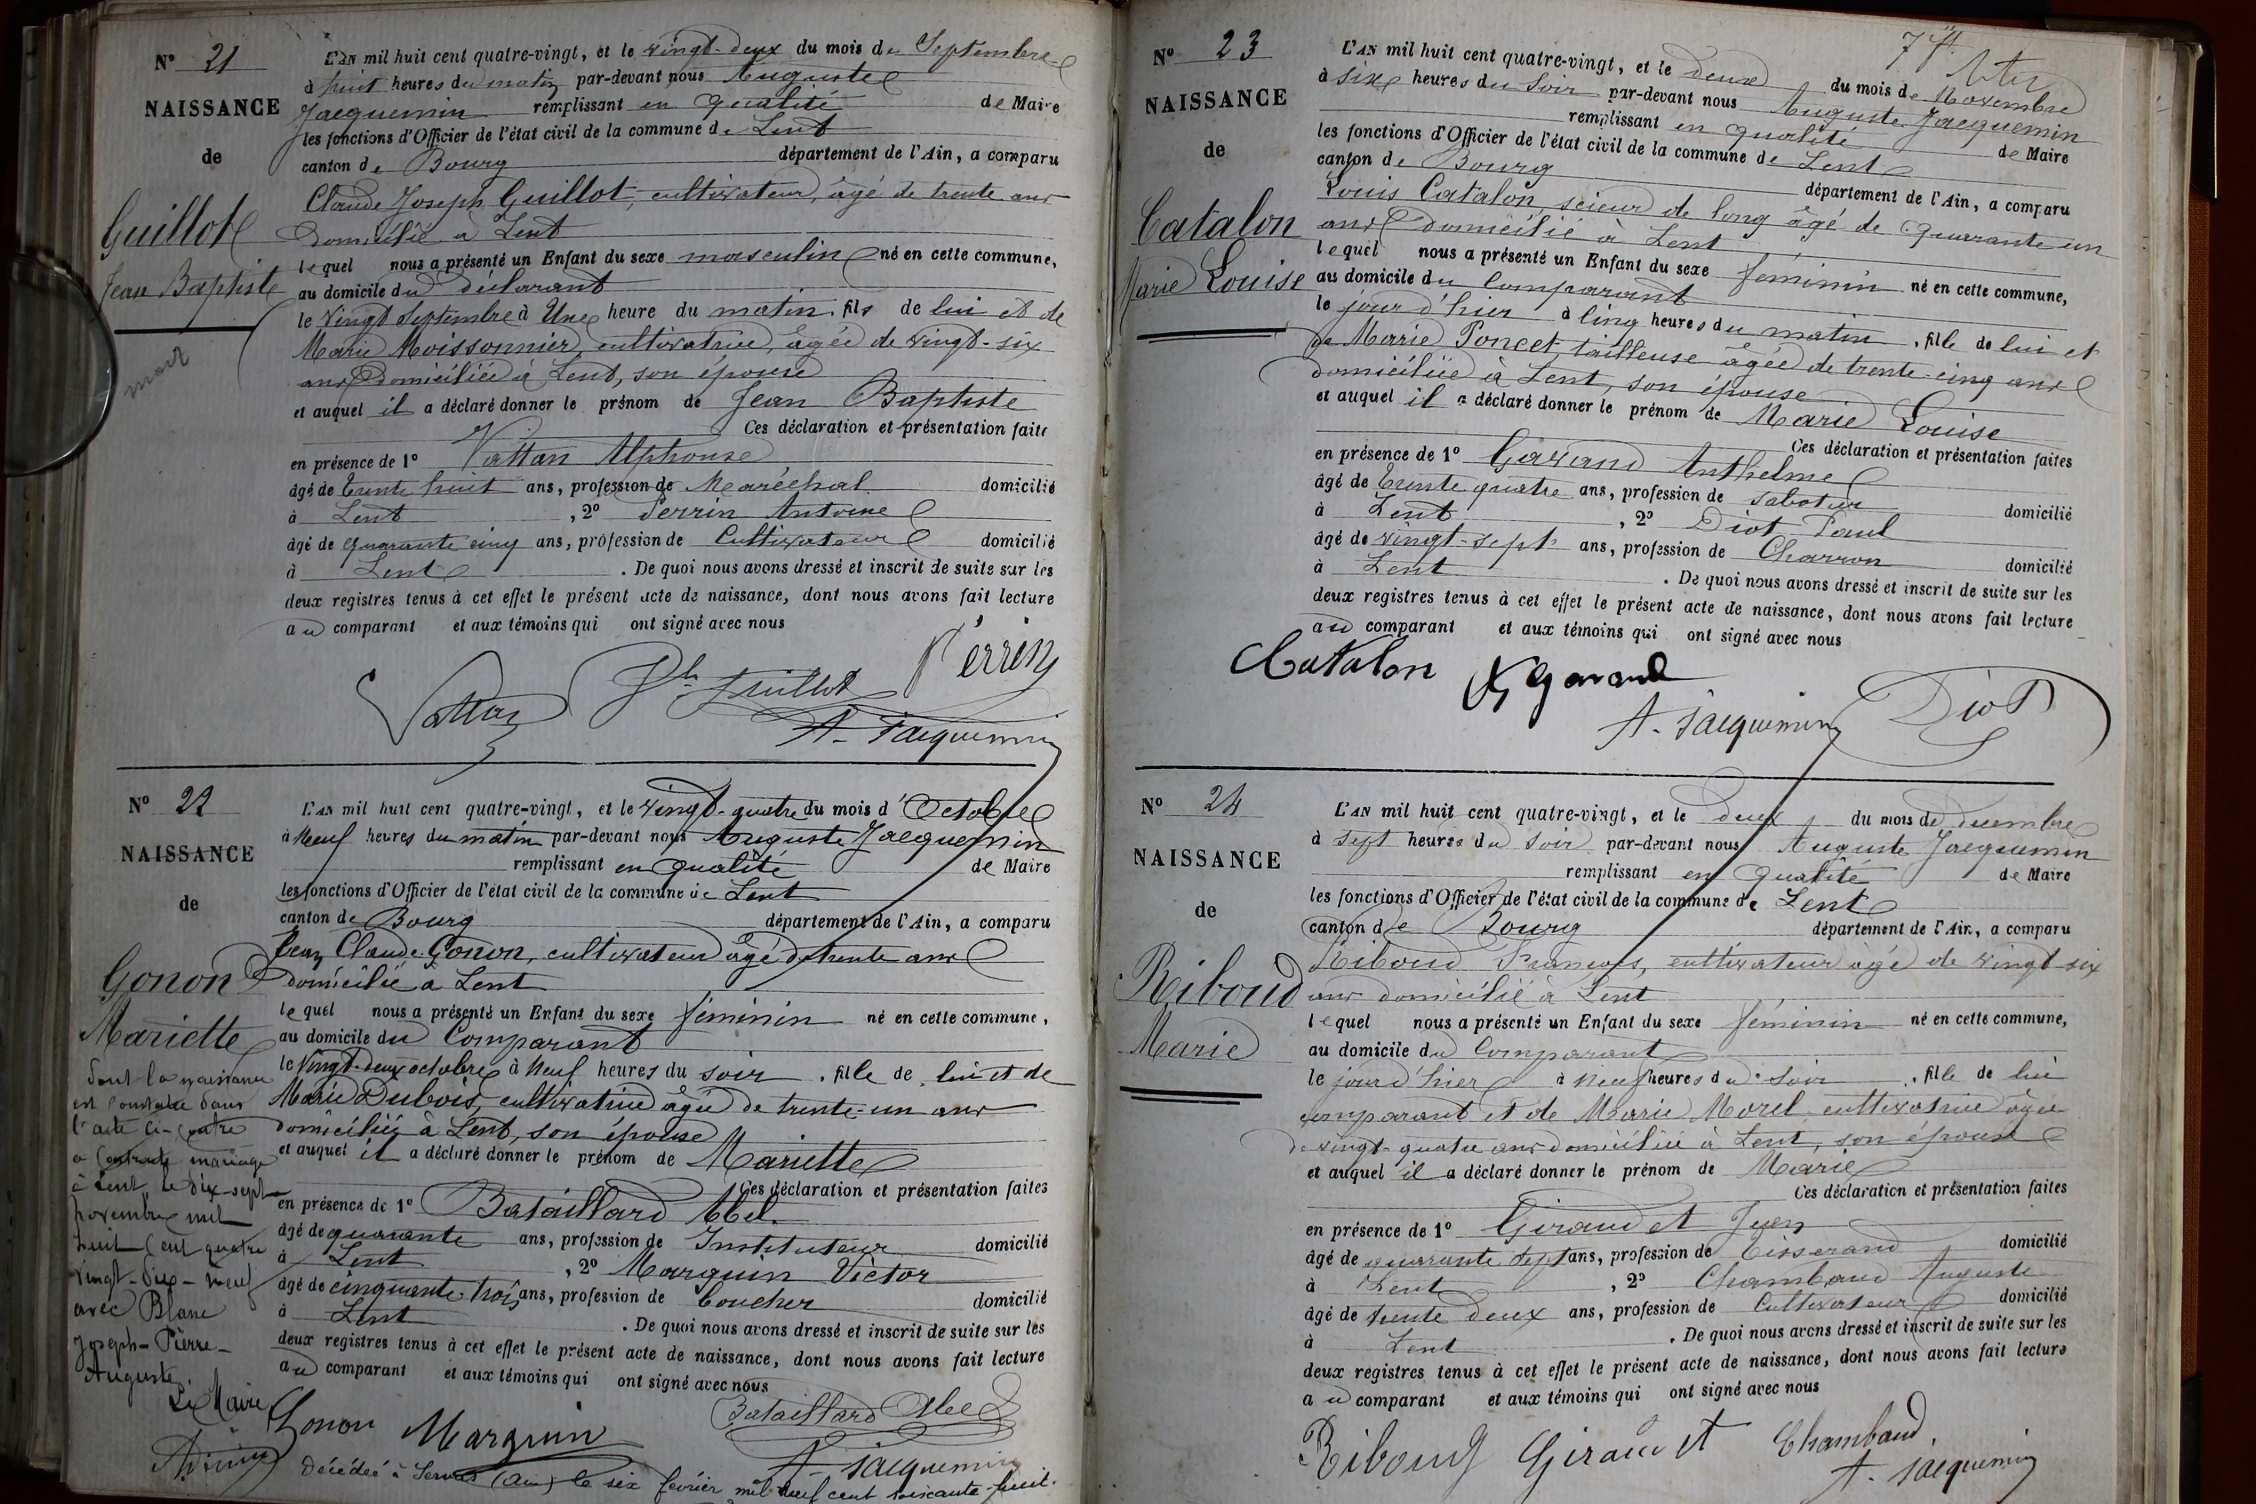 N° 21
NAISSANCE
de
Guillot
Jean Baptiste
L'AN mil huit cent quatre-vingt, et le vingt-deux du mois de Septembre
à huit heures du matin par-devant nous Auguste
Jacquemin remplissant en qualité de Maire
les fonctions d'Officier de l'état civil de la commune de Lent
canton de Bourg département de l'Ain, a comparu
Claude Joseph Guillot, cultivateur, âgé de trente ans
domicilié à Lent
lequel nous a présenté un Enfant du sexe masculin né en cette commune,
au domicile du déclarant
le vingt Septembre à Une heure du matin. fils de lui et de
Marie Moissonnier, cultivatrice, âgée de vingt-six
ans domiciliée à Lent, son épouse
et auquel il a déclaré donner le prénom de Jean Baptiste
Ces déclaration et présentation faites
en présence de 1° Vattan Alphonse
âgé de trente huit ans, profession de Maréchal domicilié
à Lent, 2° Perrin Antoine
âgé de quarante cinq ans, profession de Cultivateur domicilié
à Lent. De quoi nous avons dressé et inscrit de suite sur les
deux registres tenus à cet effet le présent acte de naissance, dont nous avons fait lecture
au comparant et aux témoins qui ont signé avec nous
Perrin
Vattan Guillot
A. Jacquemin
N° 22
NAISSANCE
de
Gonon
Mariette
dont la naissance
est constatée dans
l'acte ci-contre
a contracté mariage
à Lent, le dix-sept
novembre mil
huit cent quatre
vingt-dix-neuf
avec Blanc
Joseph-Pierre-
Auguste
Le Maire
L'AN mil huit cent quatre-vingt, et le vingt-quatre du mois d'Octobre
à Neuf heures du matin par-devant nous Auguste Jacquemin
remplissant en qualité de Maire
les fonctions d'Officier de l'état civil de la commune de Lent
canton de Bourg département de l'Ain, a comparu
Jean Claude Gonon, cultivateur âgé de trente ans
domicilié à Lent
lequel nous a présenté un Enfant du sexe féminin né en cette commune,
au domicile du Comparant
le vingt-deux octobre à Neuf heures du soir. fille de lui et de
Marie Dubois, cultivatrice âgée de trente-un ans
domiciliée à Lent, son épouse
et auquel il a déclaré donner le prénom de Mariette
Ces déclaration et présentation faites
en présence de 1° Bataillard Abel
âgé de quarante ans, profession de Instituteur domicilié
à Lent, 2° Marguin Victor
âgé de cinquante trois ans, profession de boucher domicilié
à Lent. De quoi nous avons dressé et inscrit de suite sur les
deux registres tenus à cet effet le présent acte de naissance, dont nous avons fait lecture
au comparant et aux témoins qui ont signé avec nous
Gonon Marguin Bataillard Abel
A. Jacquemin
Décédée à Servas (Ain) le six février mil neuf cent soixante-huit.
N° 23
NAISSANCE
de
Catalon
Marie Louise
L'AN mil huit cent quatre-vingt, et le deux du mois de Novembre
à six heures du soir par-devant nous Auguste Jacquemin
remplissant en qualité de Maire
les fonctions d'Officier de l'état civil de la commune de Lent
canton de Bourg département de l'Ain, a comparu
Louis Catalon, scieur de long âgé de quarante un
ans domicilié à Lent
lequel nous a présenté un Enfant du sexe féminin né en cette commune,
au domicile du Comparant
le jour d'hier à cinq heures du matin. fille de lui et
de Marie Poncet, tailleuse âgée de trente-cinq ans
domiciliée à Lent, son épouse
et auquel il a déclaré donner le prénom de Marie Louise
Ces déclaration et présentation faites
en présence de 1° Gavand Anthelme
âgé de trente quatre ans, profession de sabotier domicilié
à Lent, 2° Diot Paul
âgé de vingt-sept ans, profession de Charron domicilié
à Lent. De quoi nous avons dressé et inscrit de suite sur les
deux registres tenus à cet effet le présent acte de naissance, dont nous avons fait lecture
au comparant et aux témoins qui ont signé avec nous
Catalon Gavand
A. Jacquemin Diot
N° 24
NAISSANCE
de
Riboud
Marie
L'AN mil huit cent quatre-vingt, et le deux du mois de decembre
à sept heures du soir par-devant nous Auguste Jacquemin
remplissant en qualité de Maire
les fonctions d'Officier de l'état civil de la commune de Lent
canton de Bourg département de l'Ain, a comparu
Riboud François, cultivateur âgé de vingt six
ans domicilié à Lent
lequel nous a présenté un Enfant du sexe féminin né en cette commune,
au domicile du Comparant
le jour d'hier à neuf heures du soir. fille de lui
comparant et de Marie Morel cultivatrice âgée
de vingt-quatre ans domiciliée à Lent, son épouse
et auquel il a déclaré donner le prénom de Marie
Ces déclaration et présentation faites
en présence de 1° Giraudet Jean
âgé de quarante sept ans, profession de Tisserand domicilié
à Lent, 2° Chambaud Auguste
âgé de trente deux ans, profession de Cultivateur domicilié
à Lent. De quoi nous avons dressé et inscrit de suite sur les
deux registres tenus à cet effet le présent acte de naissance, dont nous avons fait lecture
au comparant et aux témoins qui ont signé avec nous
Riboud Giraudet Chambaud
A. Jacquemin